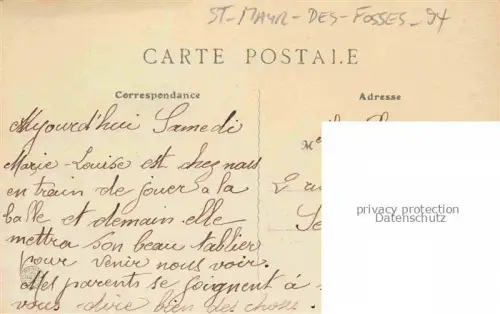 ST-MAUR-DES-FOSSES_94
CARTE POSTALE
Correspondance
Adresse
Aujourd'hui Samedi
Marie-Louise est chez nous
en train de jouer a la
balle et demain elle
mettra son beau tablier
pour venir nous voir.
Mes parents se joignent à
vous dire bien des choses
privacy protection
Datenschutz